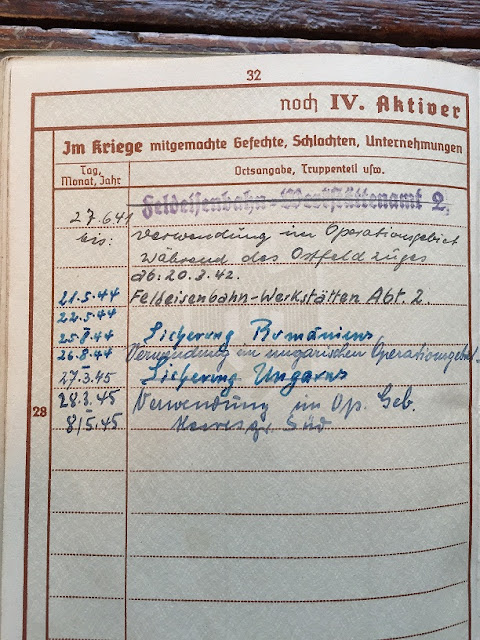 32
noch IV. Aktiver
Im Kriege mitgemachte Gefechte, Schlachten, Unternehmungen
Tag, Monat, Jahr
Ortsangabe, Truppenteil usw.
Feldeisenbahn-Werkstättenamt 2.
27.6.41 Verwendung im Operationsgebiet
bis: während des Ostfeldzuges
ab: 20.3.42.
21.5.44 Feldeisenbahn-Werkstätten Abt. 2.
22.5.44
25.8.44 Sicherung Rumäniens
26.8.44 Verwendung im ungarischen Operationsgebiet
27.3.45 Sicherung Ungarns
28.3.45 Verwendung im Op. Geb.
28
8/5.45 Heeresg. Süd